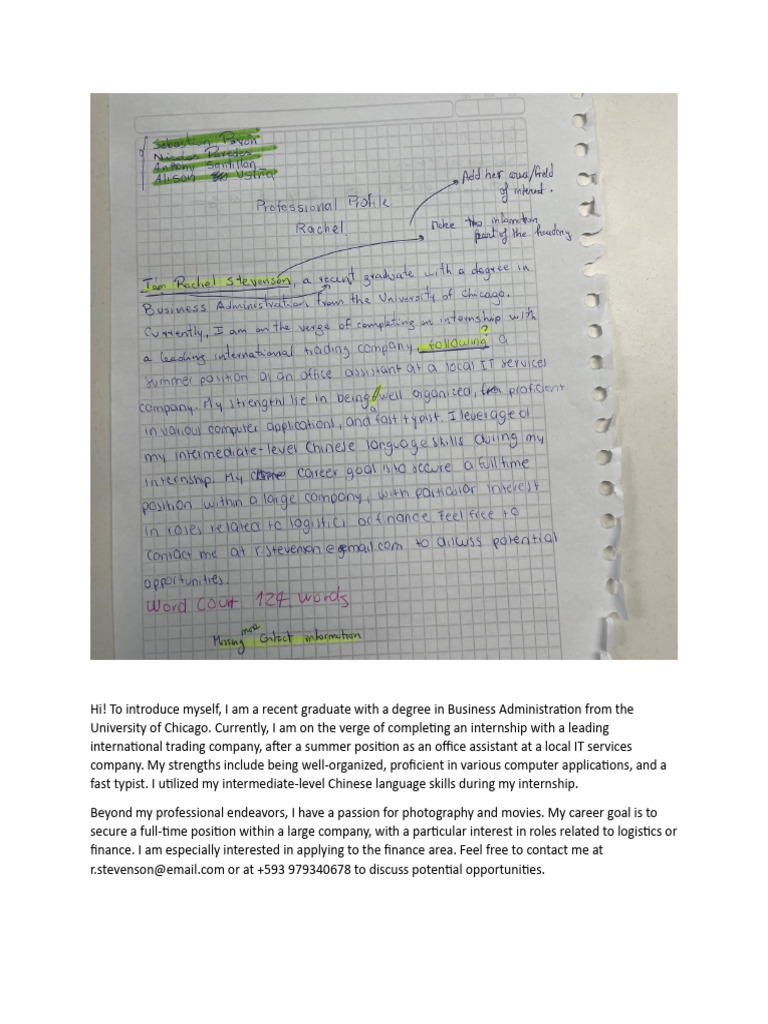 Sebastian Pavón
Nicolas Paredes
Antony Santillan
Alison Ustna
Professional Profile
Rachel
Add her area/field
of interest.
Make the information
part of the heading
I am Rachel Stevenson, a recent graduate with a degree in
Business Administration from the University of Chicago.
Currently, I am on the verge of completing an internship with
?
a leading international trading company, following a
summer position as an office assistant at a local IT services
company. My strengths lie in being well organized, proficient
in various computer applications, and a fast typist. I leverage of
my intermediate-level Chinese language skills during my
internship. My career goal is to secure a full time
position within a large company, with particular interest
in roles related to logistics or finance. Feel free to
contact me at r.stevenson@email.com to discuss potential
opportunities.
Word Court 124 words
Missing more Contact information
Hi! To introduce myself, I am a recent graduate with a degree in Business Administration from the
University of Chicago. Currently, I am on the verge of completing an internship with a leading
international trading company, after a summer position as an office assistant at a local IT services
company. My strengths include being well-organized, proficient in various computer applications, and a
fast typist. I utilized my intermediate-level Chinese language skills during my internship.
Beyond my professional endeavors, I have a passion for photography and movies. My career goal is to
secure a full-time position within a large company, with a particular interest in roles related to logistics or
finance. I am especially interested in applying to the finance area. Feel free to contact me at
r.stevenson@email.com or at +593 979340678 to discuss potential opportunities.